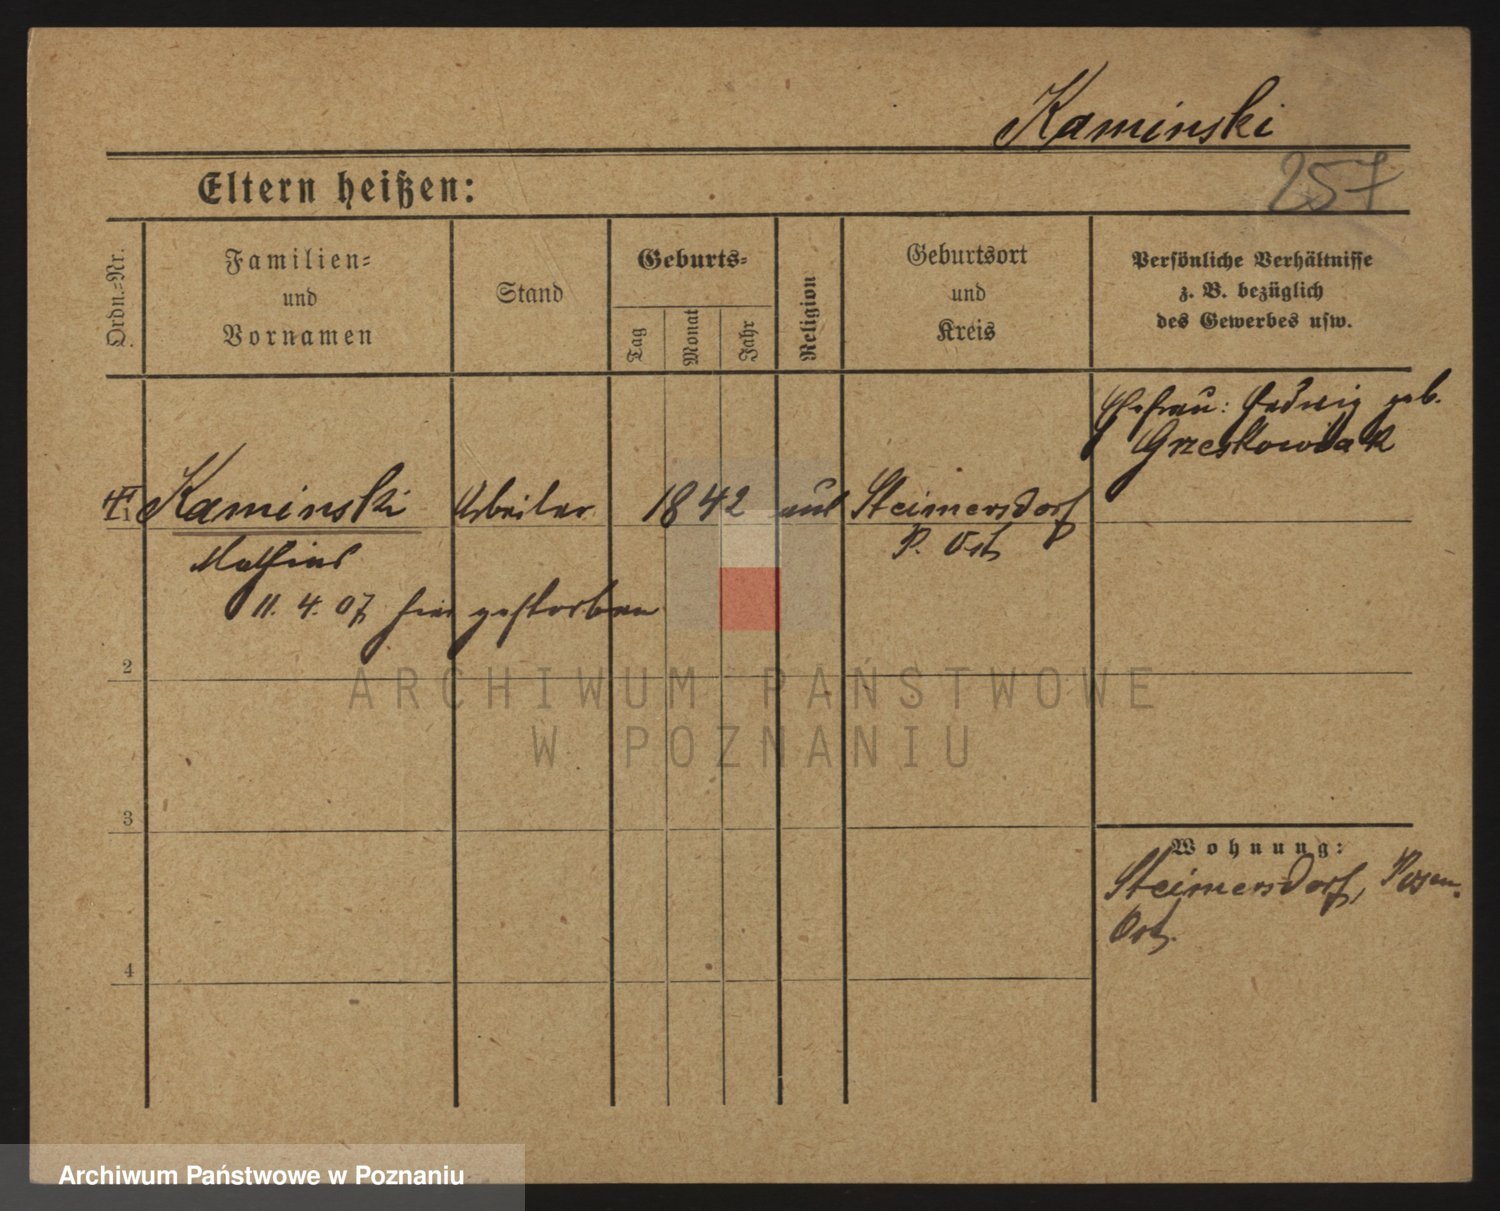 Kaminski
257
Eltern heißen:
Ordn.-Nr.
Familien-
und
Vornamen
Stand
Geburts-
Tag
Monat
Jahr
Religion
Geburtsort
und
Kreis
Persönliche Verhältnisse
z. B. bezüglich
des Gewerbes usw.
Ehefrau: Hedwig geb.
Grzeskowiak
Kaminski Arbeiter 1842 Steimersdorf
P. Ost
Mathias
11. 4. 07 hier gestorben
2
ARCHIWUM PAŃSTWOWE
W POZNANIU
3
Wohnung:
Steimersdorf, Posen.
Ost.
4
Archiwum Państwowe w Poznaniu